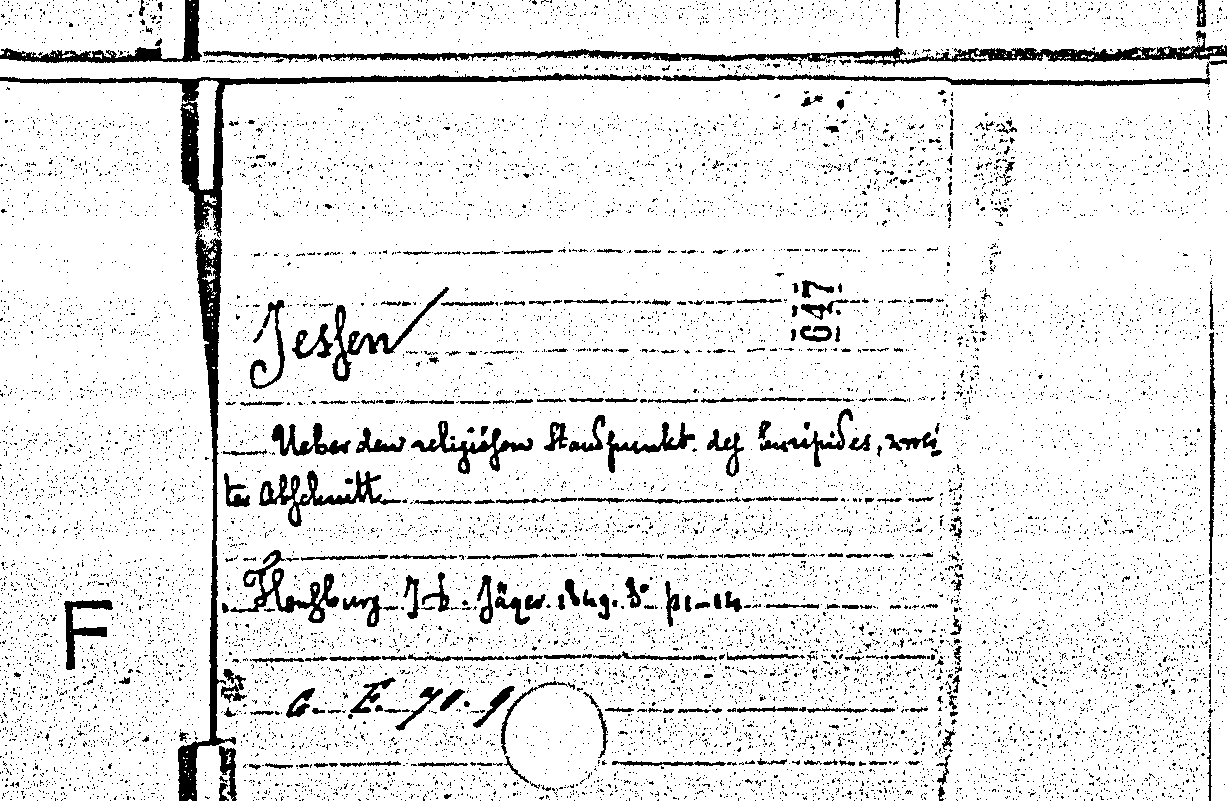 Jessen
647
Ueber den religiösen Standpunkt des Euripides, zwei-
ter Abschnitt.
Flensburg J. b. Jäger 1849. 8° p 1-14
F
G. E. 70. 9